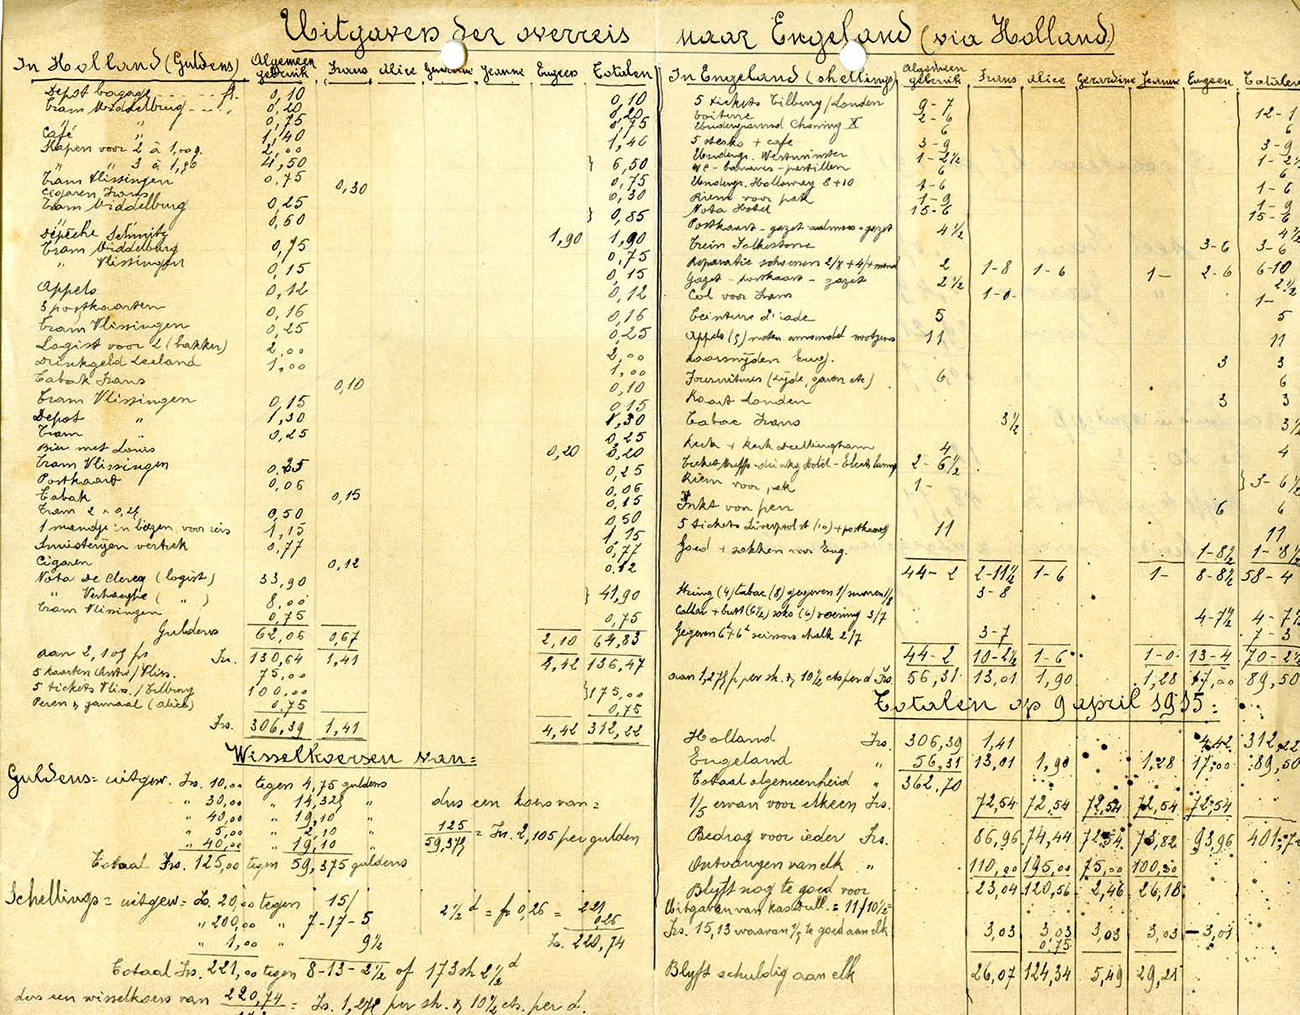 Uitgaven der overreis naar Engeland (via Holland)
In Holland (Guldens) Algemeen gebruik Frans Alice Gerardine Jeanne Eugeen Totalen
Depot bagage 0,10 0,10
Tram Middelburg 0,20 0,20
" " 0,75 0,75
Café " 1,40 1,40
Slapen voor 2 à 1,00 2,00
" " 3 à 1,50 4,50 } 6,50
Tram Vlissingen 0,75 0,75
Cigaren Frans 0,30 0,30
Tram Middelburg 0,25
" 0,60 } 0,85
Dépêche Schmitz 1,90 1,90
Tram Middelburg 0,75 0,75
" Vlissingen 0,15 0,15
Appels 0,12 0,12
3 postkaarten 0,16 0,16
Tram Vlissingen 0,25 0,25
Logist voor 2 (bakker) 2,00 2,00
Drinkgeld Zeeland 1,00 1,00
Tabak Frans 0,10 0,10
Tram Vlissingen 0,15 0,15
Depot " 1,30 1,30
Tram " 0,25 0,25
Bier met Louis 0,20 0,20
Tram Vlissingen 0,25 0,25
Postkaart 0,06 0,06
Tabak 0,15 0,15
Tram 2 × 0,25 0,50 0,50
1 mandje in biezen voor reis 1,15 1,15
vertrek 0,77 0,77
Cigaren 0,12 0,12
Nota De Clercq (logist) 33,90
" Verhaeghe ( " ) 8,00 } 41,90
Tram Vlissingen 0,75 0,75
Guldens 62,06 0,67 2,10 64,83
aan 2,105 frs Frs. 130,64 1,41 4,42 136,47
5 kaarten Antw/Vliss. 75,00
5 tickets Vliss./Tilbury 100,00 } 175,00
Peren & (Alice) 0,75 0,75
Frs. 306,39 1,41 4,42 312,22
Wisselkoersen van=
Guldens= uitgew. Frs. 10,00 tegen 4,75 guldens
" 30,00 " 14,325 "
" 40,00 " 19,10 "
" 5,00 " 2,10 "
" 40,00 " 19,10 "
Totaal Frs. 125,00 tegen 59,375 guldens
dus een koers van=
125
59,375 = Frs. 2,105 per gulden
Schellings= uitgew= Frs. 20,00 tegen 15/
" 200,00 " 7-17-5
" 1,00 " 9½
Totaal Frs. 221,00 tegen 8-13-2½ of 173 sh 2½ d
2½ d = fr 0,26 = 221
0,26
Fr. 220,74
dus een wisselkoers van 220,74 = Frs. 1,275 per sh. & 10½ cts. per d.
In Engeland (shellings) Algemeen gebruik Frans Alice Gerardine Jeanne Eugeen Totalen
5 tickets Tilbury/Londen 9-7
Voiture 2-6 12-1
Underground Charing X 6 6
5 steaks + café 3-9 3-9
Undergr. Westminster 1-2½ 1-2½
WC - bananes - pastillen 6 6
Undergr. Holloway 8+10 1-6 1-6
Riem voor pak 1-9 1-9
Nota Hotel 15-6 15-6
Postkaart - gazet - gazet 4½ 4½
Trein Folkestone 3-6 3-6
Reparatie schoenen 2/8 + 4/ 2 1-8 1-6 1- 2-6 6-10
Gazet - postkaart - gazet 2½ 2½
Col voor Frans 1-0 1-
Ceinture d'iade 5 5
Appels (5) noten 11 11
Haarsnijden Eug. 3 3
Fournitures (zijde, garen etc) 6 6
Kaart Londen 3 3
Tabac Frans 3½ 3½
Kerk + kerk 4 4
2-6½
Riem voor pak 1- } 3-6½
Inkt voor pen 6 6
5 tickets Liverpool st (10) + postkaart 11 11
Goed + zokken voor Eug. 1-8½ 1-8½
44-2 2-11½ 1-6 1- 8-8½ 58-4
String (4) tabac (8) gegeven 3-8
Collar + (6½) soks (6) 3/7 4-7½ 4-7½
Gegeven 6d+6d scissors chalk 2/7 3-7 7-3
44-2 10-2½ 1-6 1-0 13-4 70-2½
aan 1,275 fr per sh. & 10½ cts per d Frs. 56,31 13,01 1,90 1,28 17,00 89,50
Totalen op 9 april 1915:
Holland Frs. 306,39 1,41 4,42 312,22
Engeland " 56,31 13,01 1,90 1,28 17,00 89,50
Totaal algemeenheid " 362,70
1/5 ervan voor elkeen Frs. 72,54 72,54 72,54 72,54 72,54
Bedrag voor ieder Frs. 86,96 74,44 72,54 73,82 93,96 401,72
Ontvangen van elk " 110,00 195,00 75,00 100,00
Blyft nog te goed voor 23,04 120,56 2,46 26,18
Uitgaven van kas = 11/10½=
Frs. 15,13 waarvan 1/5 te goed aan elk 3,03 3,03 3,03 3,03 -3,01
0,75
Blyft schuldig aan elk 26,07 124,34 5,49 29,21